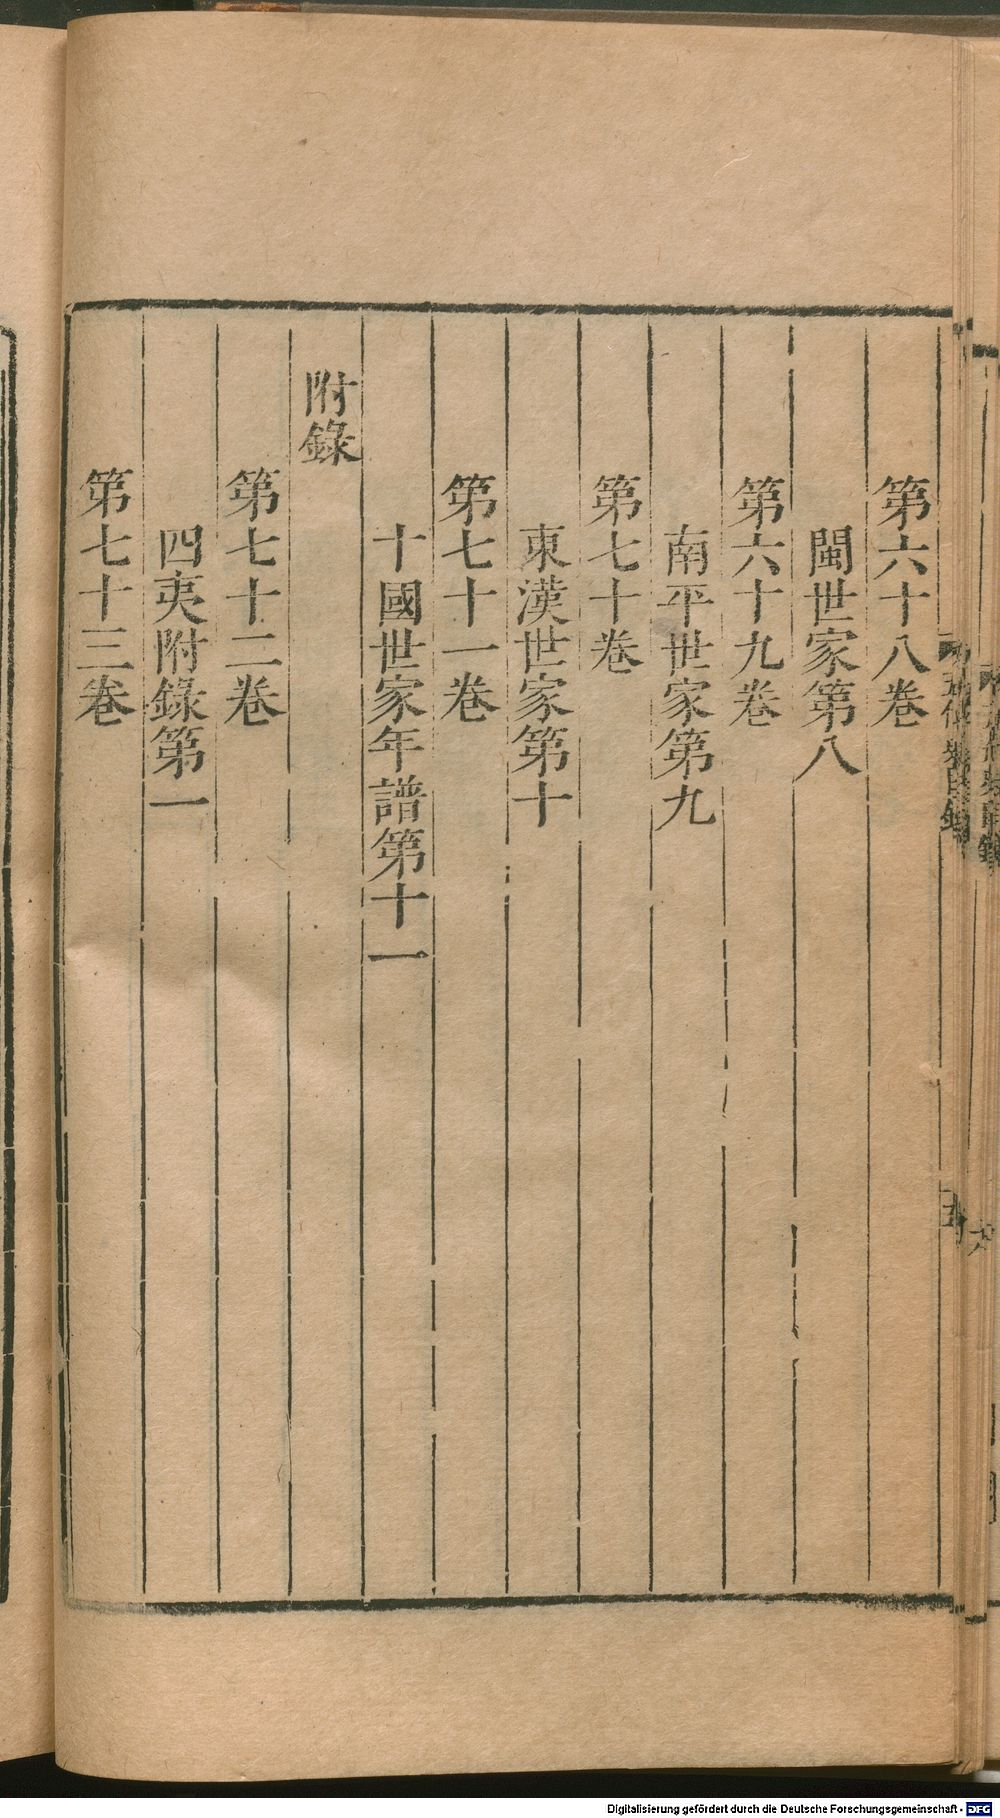 第六十八卷
閩世家第八
第六十九卷
南平世家第九
第七十卷
東漢世家第十
第七十一卷
十國世家年譜第十一
附錄
第七十二卷
四夷附錄第一
第七十三卷
Digitalisierung gefördert durch die Deutsche Forschungsgemeinschaft - DFG